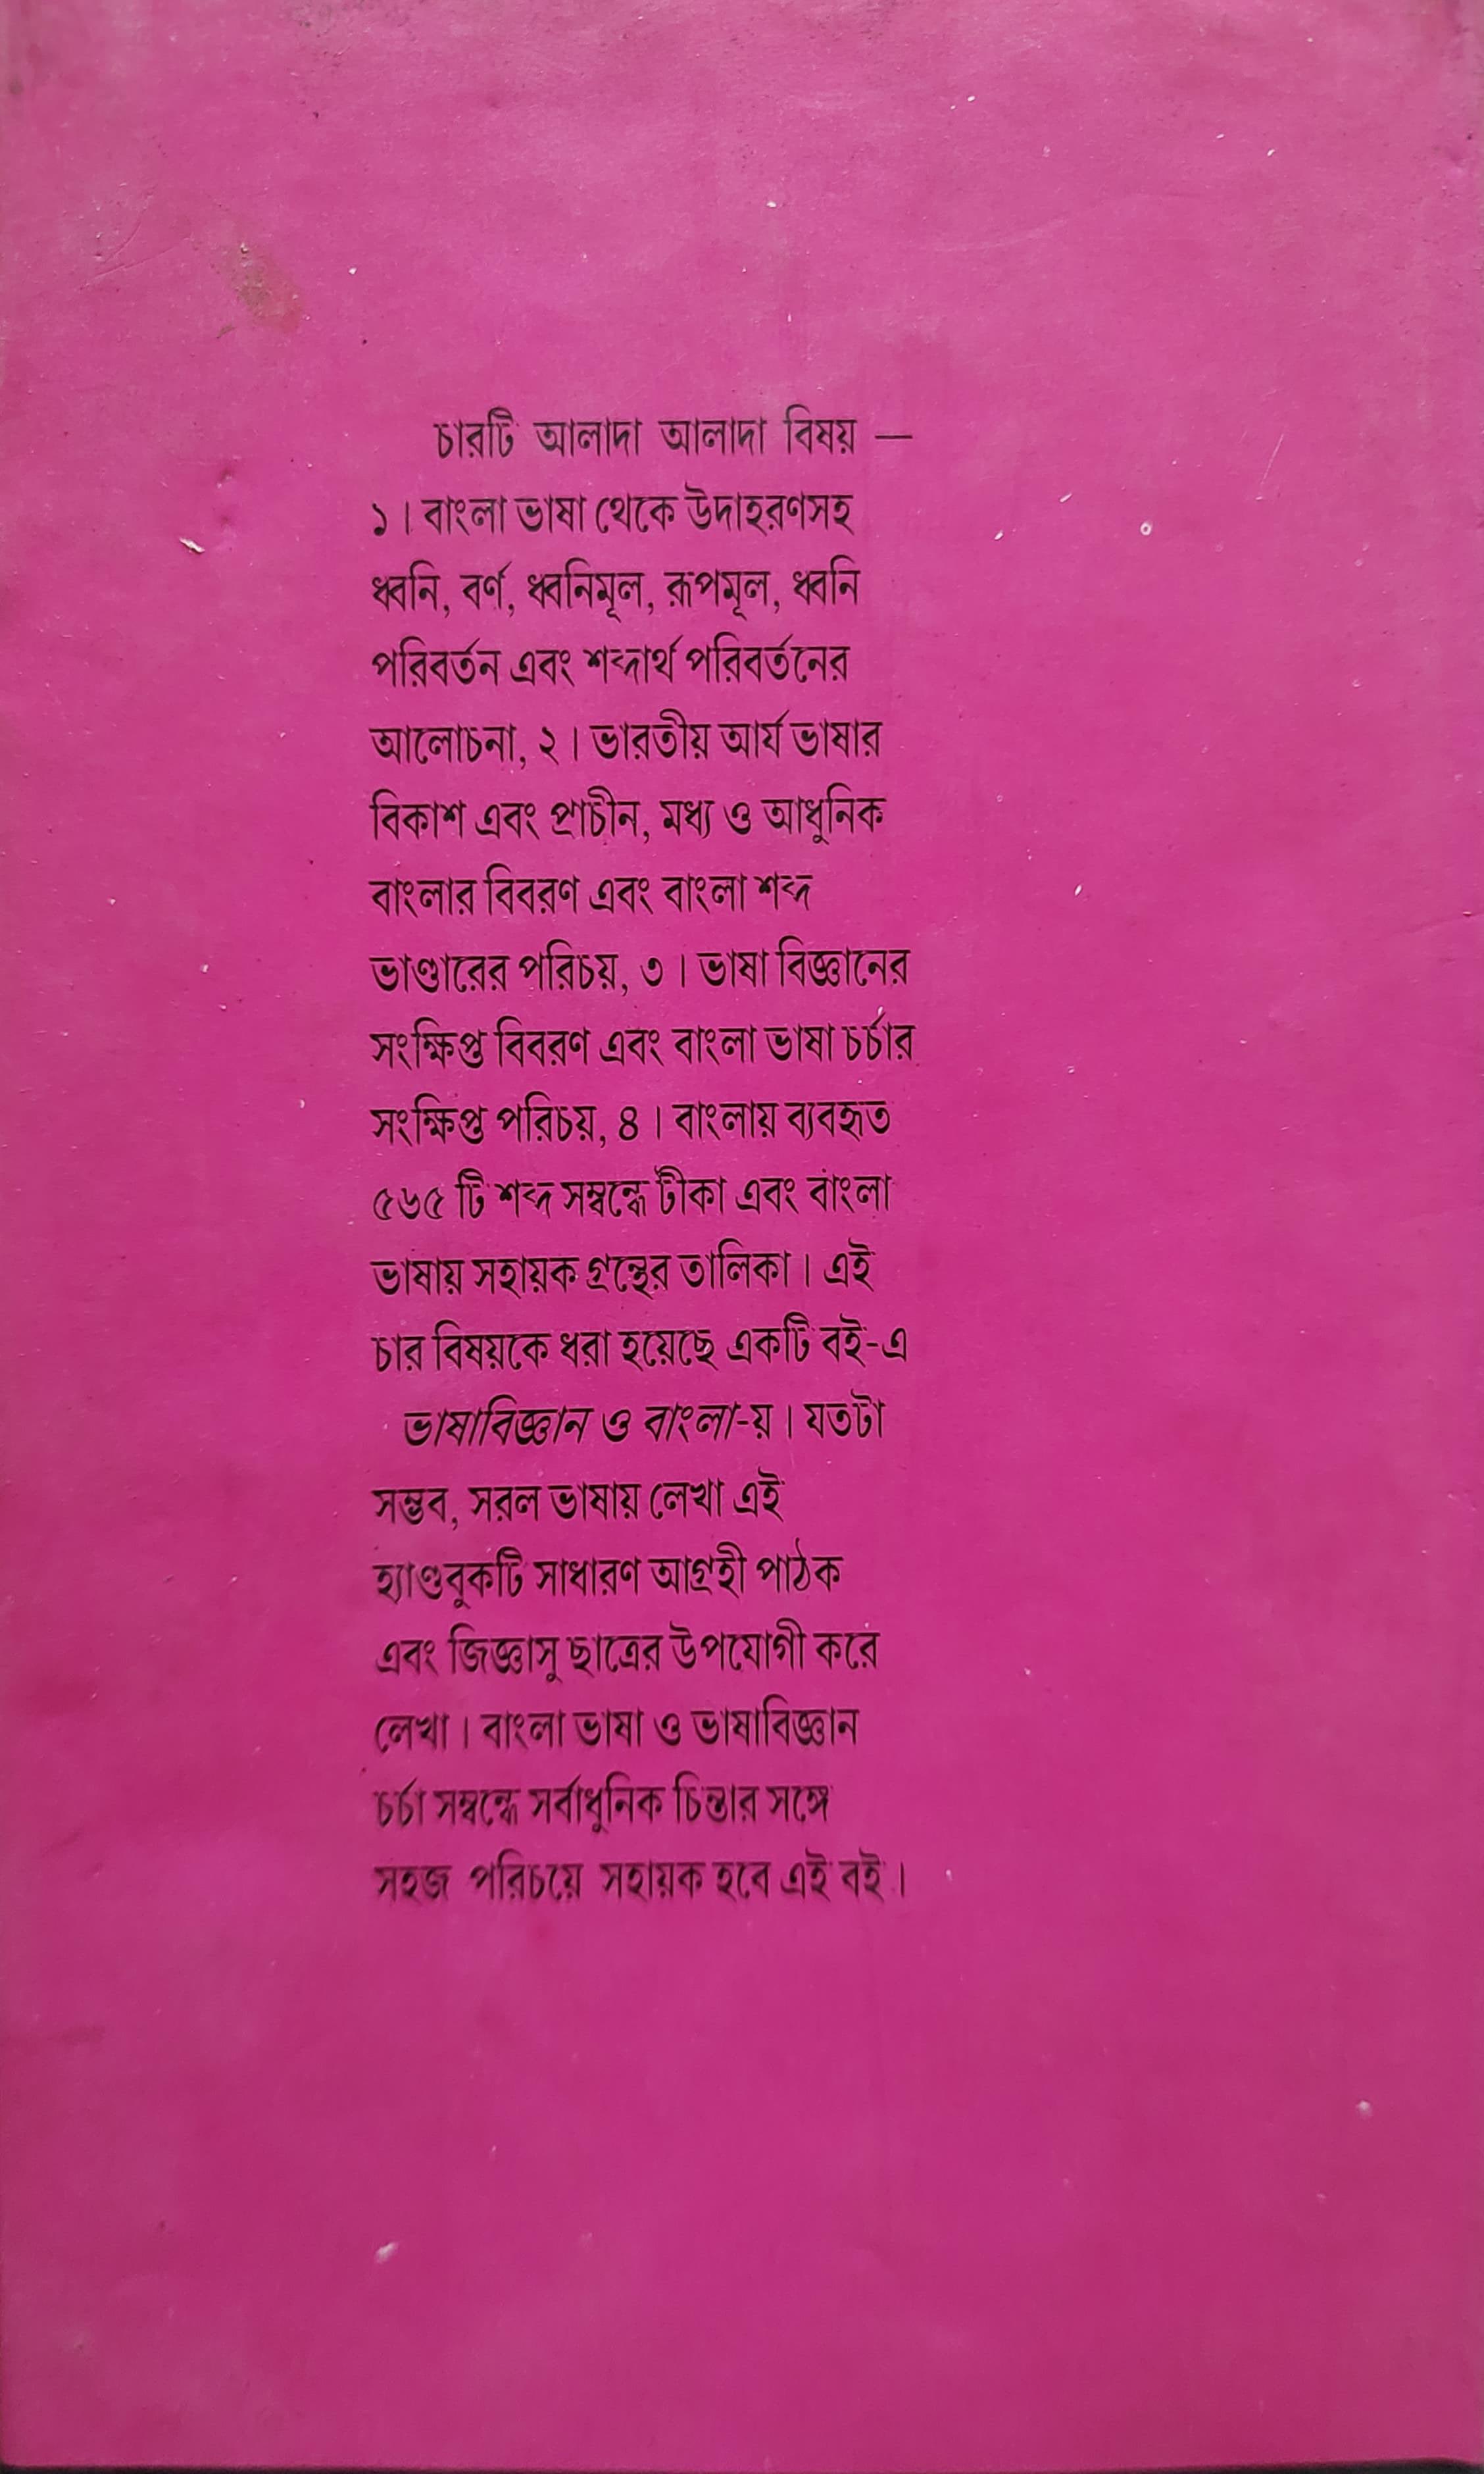 চারটি আলাদা আলাদা বিষয় —
১। বাংলা ভাষা থেকে উদাহরণসহ
ধ্বনি, বর্ণ, ধ্বনিমূল, রূপমূল, ধ্বনি
পরিবর্তন এবং শব্দার্থ পরিবর্তনের
আলোচনা, ২। ভারতীয় আর্য ভাষার
বিকাশ এবং প্রাচীন, মধ্য ও আধুনিক
বাংলার বিবরণ এবং বাংলা শব্দ
ভাণ্ডারের পরিচয়, ৩। ভাষা বিজ্ঞানের
সংক্ষিপ্ত বিবরণ এবং বাংলা ভাষা চর্চার
সংক্ষিপ্ত পরিচয়, ৪। বাংলায় ব্যবহৃত
৫৬৫ টি শব্দ সম্বন্ধে টীকা এবং বাংলা
ভাষায় সহায়ক গ্রন্থের তালিকা। এই
চার বিষয়কে ধরা হয়েছে একটি বই-এ
ভাষাবিজ্ঞান ও বাংলা-য়। যতটা
সম্ভব, সরল ভাষায় লেখা এই
হ্যাণ্ডবুকটি সাধারণ আগ্রহী পাঠক
এবং জিজ্ঞাসু ছাত্রের উপযোগী করে
লেখা। বাংলা ভাষা ও ভাষাবিজ্ঞান
চর্চা সম্বন্ধে সর্বাধুনিক চিন্তার সঙ্গে
সহজ পরিচয়ে সহায়ক হবে এই বই।